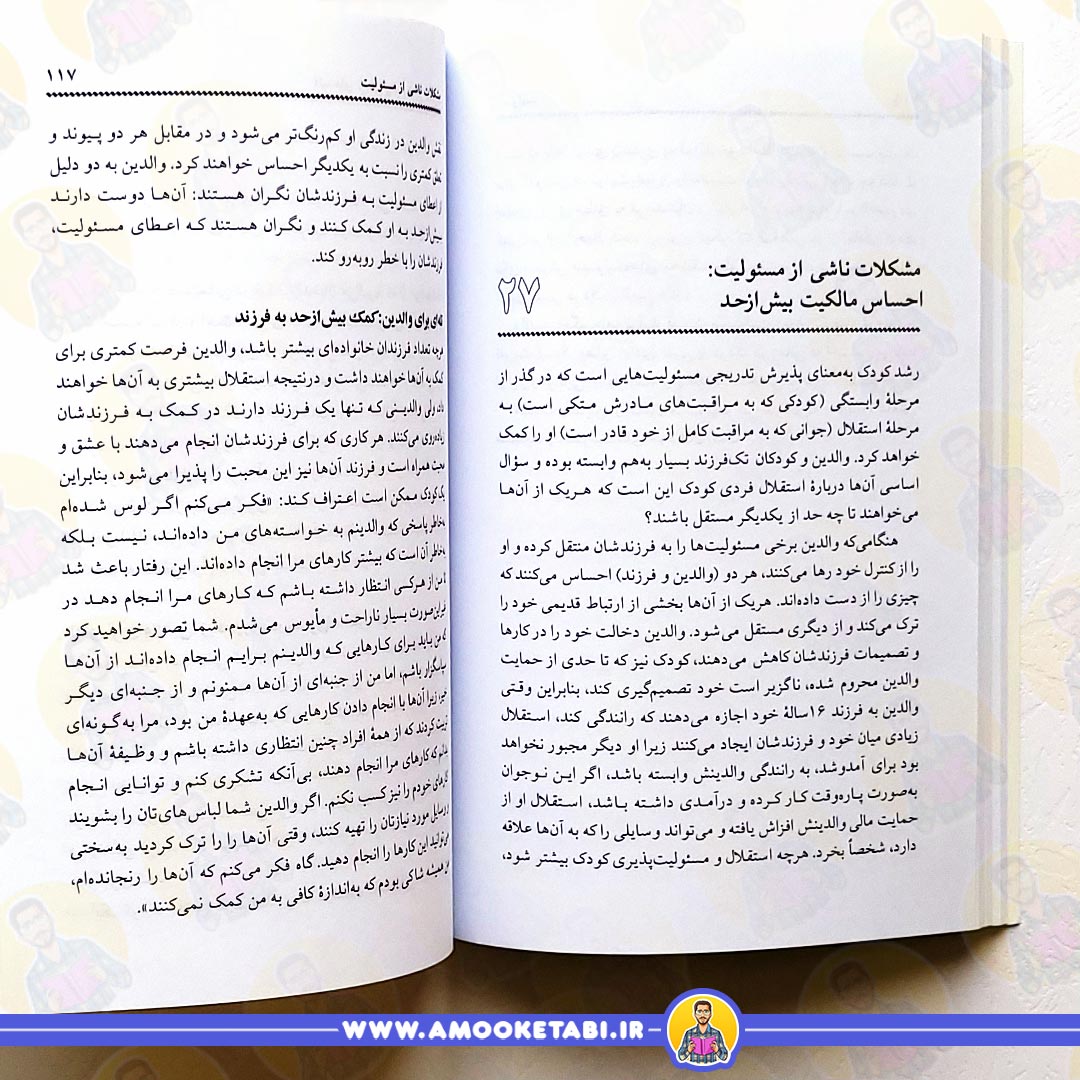 مشکلات ناشی از مسئولیت:
احساس مالکیت بیش‌ازحد
۲۷
رشد کودک به‌معنای پذیرش تدریجی مسئولیت‌هایی است که در گذر از
مرحلهٔ وابستگی (کودکی که به مراقبت‌های مادرش متکی است) به
مرحلهٔ استقلال (جوانی که به مراقبت کامل از خود قادر است) او را کمک
خواهد کرد. والدین و کودکان تک‌فرزند بسیار به‌هم وابسته بوده و سؤال
اساسی آن‌ها دربارهٔ استقلال فردی کودک این است که هریک از آن‌ها
می‌خواهند تا چه حد از یکدیگر مستقل باشند؟
هنگامی‌که والدین برخی مسئولیت‌ها را به فرزندشان منتقل کرده و او
را از کنترل خود رها می‌کنند، هر دو (والدین و فرزند) احساس می‌کنند که
چیزی را از دست داده‌اند. هریک از آن‌ها بخشی از ارتباط قدیمی خود را
ترک می‌کند و از دیگری مستقل می‌شود. والدین دخالت خود را در کارها
و تصمیمات فرزندشان کاهش می‌دهند، کودک نیز که تا حدی از حمایت
والدین محروم شده، ناگزیر است خود تصمیم‌گیری کند، بنابراین وقتی
والدین به فرزند ۱۶سالهٔ خود اجازه می‌دهند که رانندگی کند، استقلال
زیادی میان خود و فرزندشان ایجاد می‌کنند زیرا او دیگر مجبور نخواهد
بود برای آمدوشد، به رانندگی والدینش وابسته باشد، اگر این نوجوان
به‌صورت پاره‌وقت کار کرده و درآمدی داشته باشد، استقلال او از
حمایت مالی والدینش افزایش یافته و می‌تواند وسایلی را که به آن‌ها علاقه
دارد، شخصاً بخرد. هرچه استقلال و مسئولیت‌پذیری کودک بیشتر شود،
مشکلات ناشی از مسئولیت
۱۱۷
نقش والدین در زندگی او کم‌رنگ‌تر می‌شود و در مقابل هر دو پیوند و
تعلق کمتری را نسبت به یکدیگر احساس خواهند کرد. والدین به دو دلیل
از اعطای مسئولیت به فرزندشان نگران هستند: آن‌ها دوست دارند
بیش‌ازحد به او کمک کنند و نگران هستند که اعطای مسئولیت،
فرزندشان را با خطر روبه‌رو کند.
برای والدین: کمک بیش‌ازحد به فرزند
هرچه تعداد فرزندان خانواده‌ای بیشتر باشد، والدین فرصت کمتری برای
کمک به آن‌ها خواهند داشت و درنتیجه استقلال بیشتری به آن‌ها خواهند
داد، ولی والدینی که تنها یک فرزند دارند در کمک به فرزندشان
زیاده‌روی می‌کنند. هر کاری که برای فرزندشان انجام می‌دهند با عشق و
محبت همراه است و فرزند آن‌ها نیز این محبت را پذیرا می‌شود، بنابراین
یک کودک ممکن است اعتراف کند: «فکر می‌کنم اگر لوس شده‌ام
به‌خاطر پاسخی که والدینم به خواسته‌های من داده‌اند، نیست بلکه
به‌خاطر آن است که بیشتر کارهای مرا انجام داده‌اند. این رفتار باعث شد
تا من از هرکسی انتظار داشته باشم که کارهای مرا انجام دهد در
غیر این‌صورت بسیار ناراحت و مأیوس می‌شدم. شما تصور خواهید کرد
که من باید برای کارهایی که والدینم برایم انجام داده‌اند از آن‌ها
سپاسگزار باشم، اما من از جنبه‌ای از آن‌ها ممنونم و از جنبه‌ای دیگر
خیر، زیرا آن‌ها با انجام دادن کارهایی که به‌عهدهٔ من بود، مرا به‌گونه‌ای
تربیت کردند که از همهٔ افراد چنین انتظاری داشته باشم و وظیفهٔ آن‌ها
بدانم که کارهای مرا انجام دهند، بی‌آنکه تشکری کنم و توانایی انجام
کارهای خودم را نیز کسب نکنم. اگر والدین شما لباس‌های‌تان را بشویند
و وسایل مورد نیازتان را تهیه کنند، وقتی آن‌ها را را ترک کردید به‌سختی
می‌توانید این کارها را انجام دهید. گاه فکر می‌کنم که آن‌ها را رنجانده‌ام،
من همیشه شاکی بودم که به‌اندازهٔ کافی به من کمک نمی‌کنند».
WWW.AMOOKETABI.IR